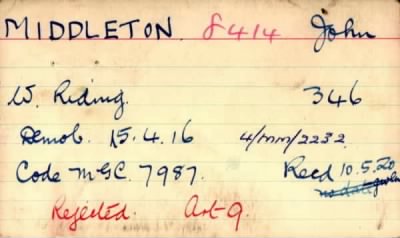 MIDDLETON. 8414 John
W. Riding. 346
Demob. 15.4.16 4/mm/2232
Code MGC. 7987. Recd 10.5.20
no date given
Rejected. Art 9.